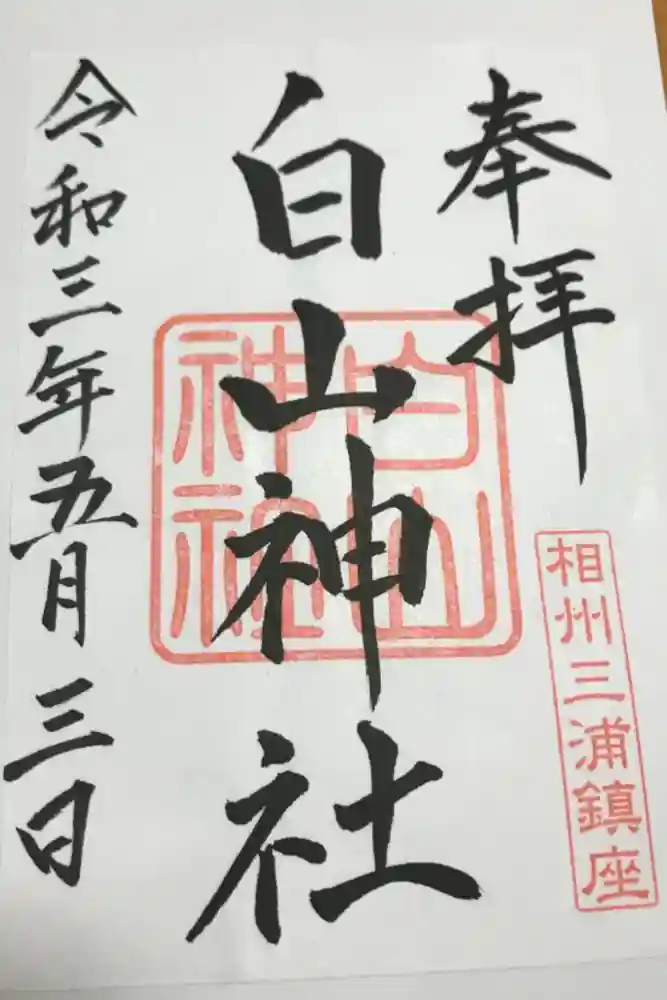 奉拝
相州三浦鎮座
白山神社
白山神社
令和三年五月三日